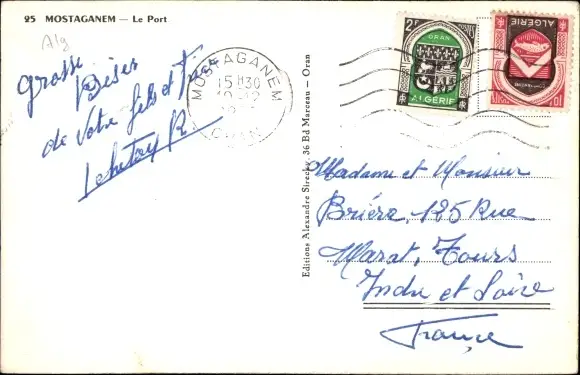 25 MOSTAGANEM — Le Port
Alg
Grosses
Bises
de votre fils et
MOSTAGANEM
15 H30
ORAN
2F
POSTES
ORAN
ALGÉRIE
ALGÉRIE
POSTES
10F
Editions Alexandre Sirecky, 36 Bd Marceau - Oran
Madame et Monsieur
Brière, 125 Rue
Marat, Tours
Indre et Loire
France